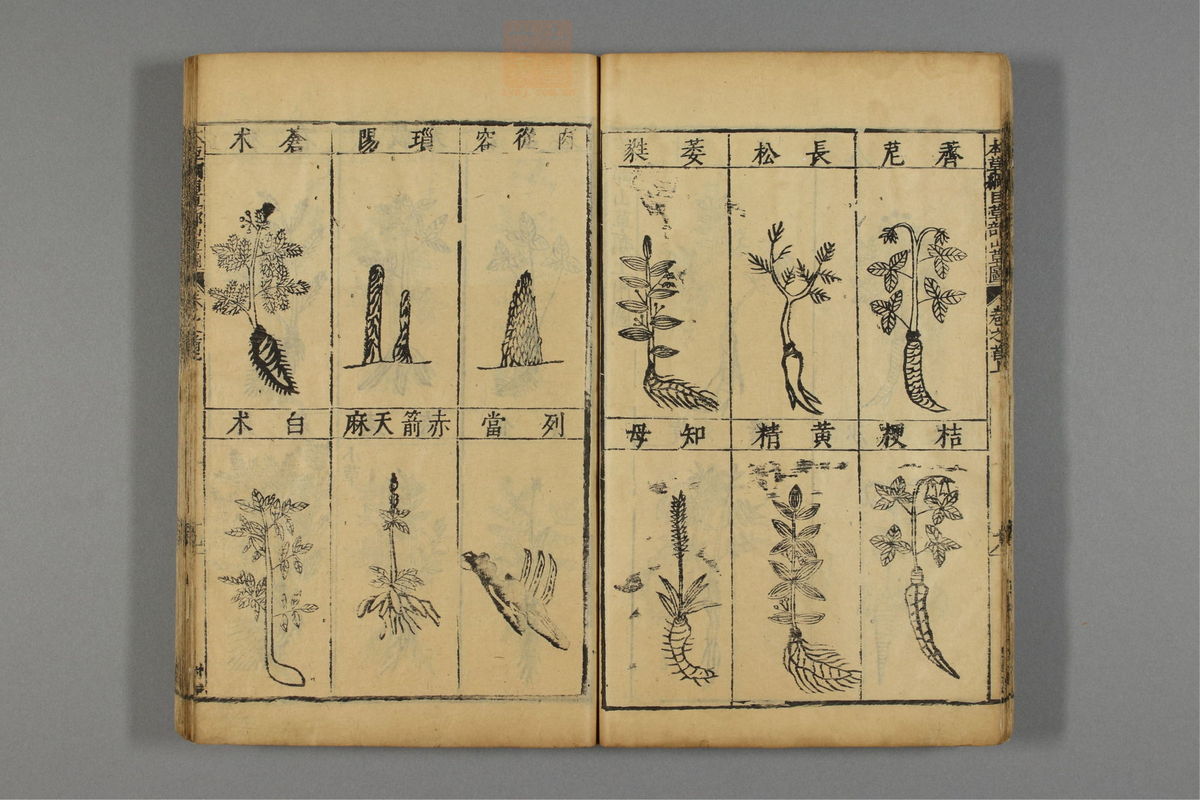 本草綱目草部山草圖
薺苨
長松
萎㽔
桔梗
黃精
知母
肉從容
瑣陽
蒼术
列當
赤箭天麻
白术